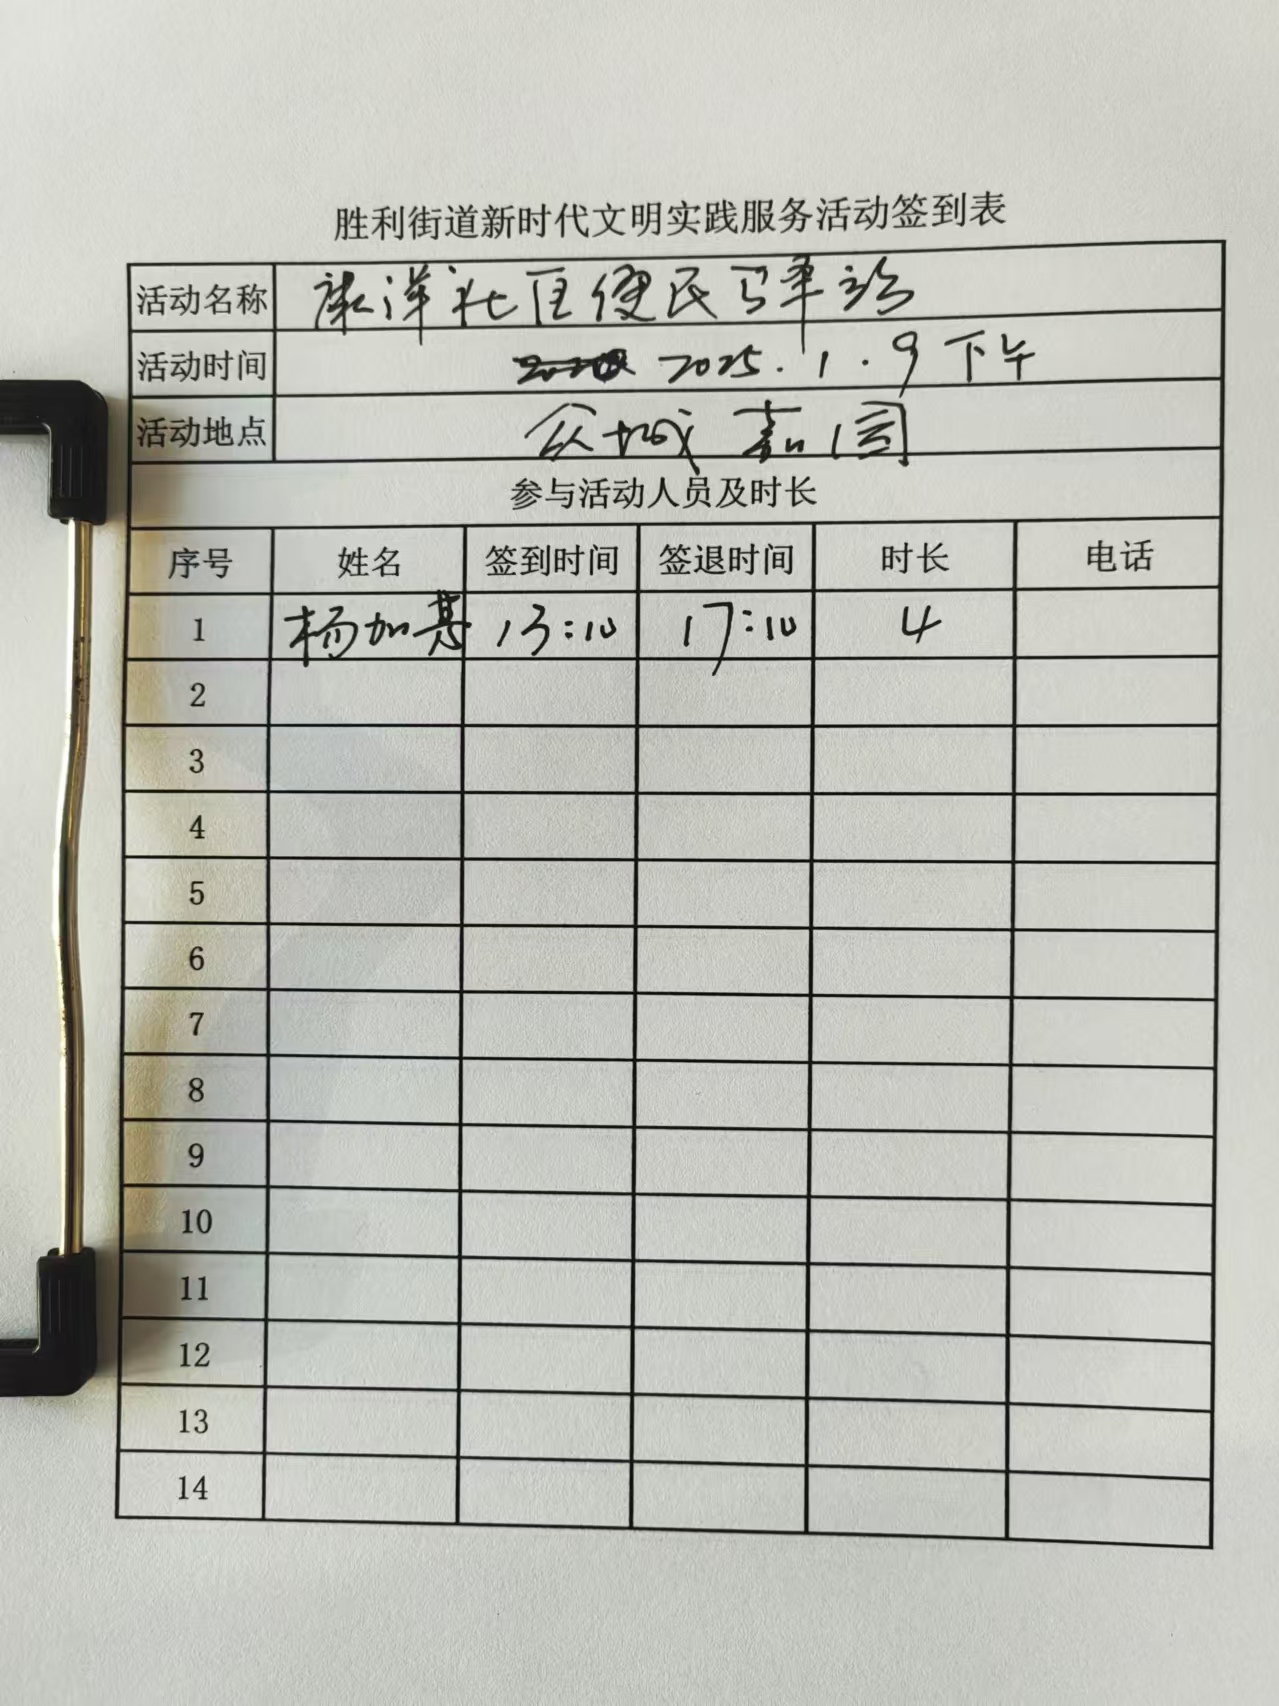 胜利街道新时代文明实践服务活动签到表
活动名称 康洋社区便民驿站
活动时间 2025.1.9下午
活动地点 众城嘉园
参与活动人员及时长
序号 姓名 签到时间 签退时间 时长 电话
1 杨加基 13:10 17:10 4
2
3
4
5
6
7
8
9
10
11
12
13
14